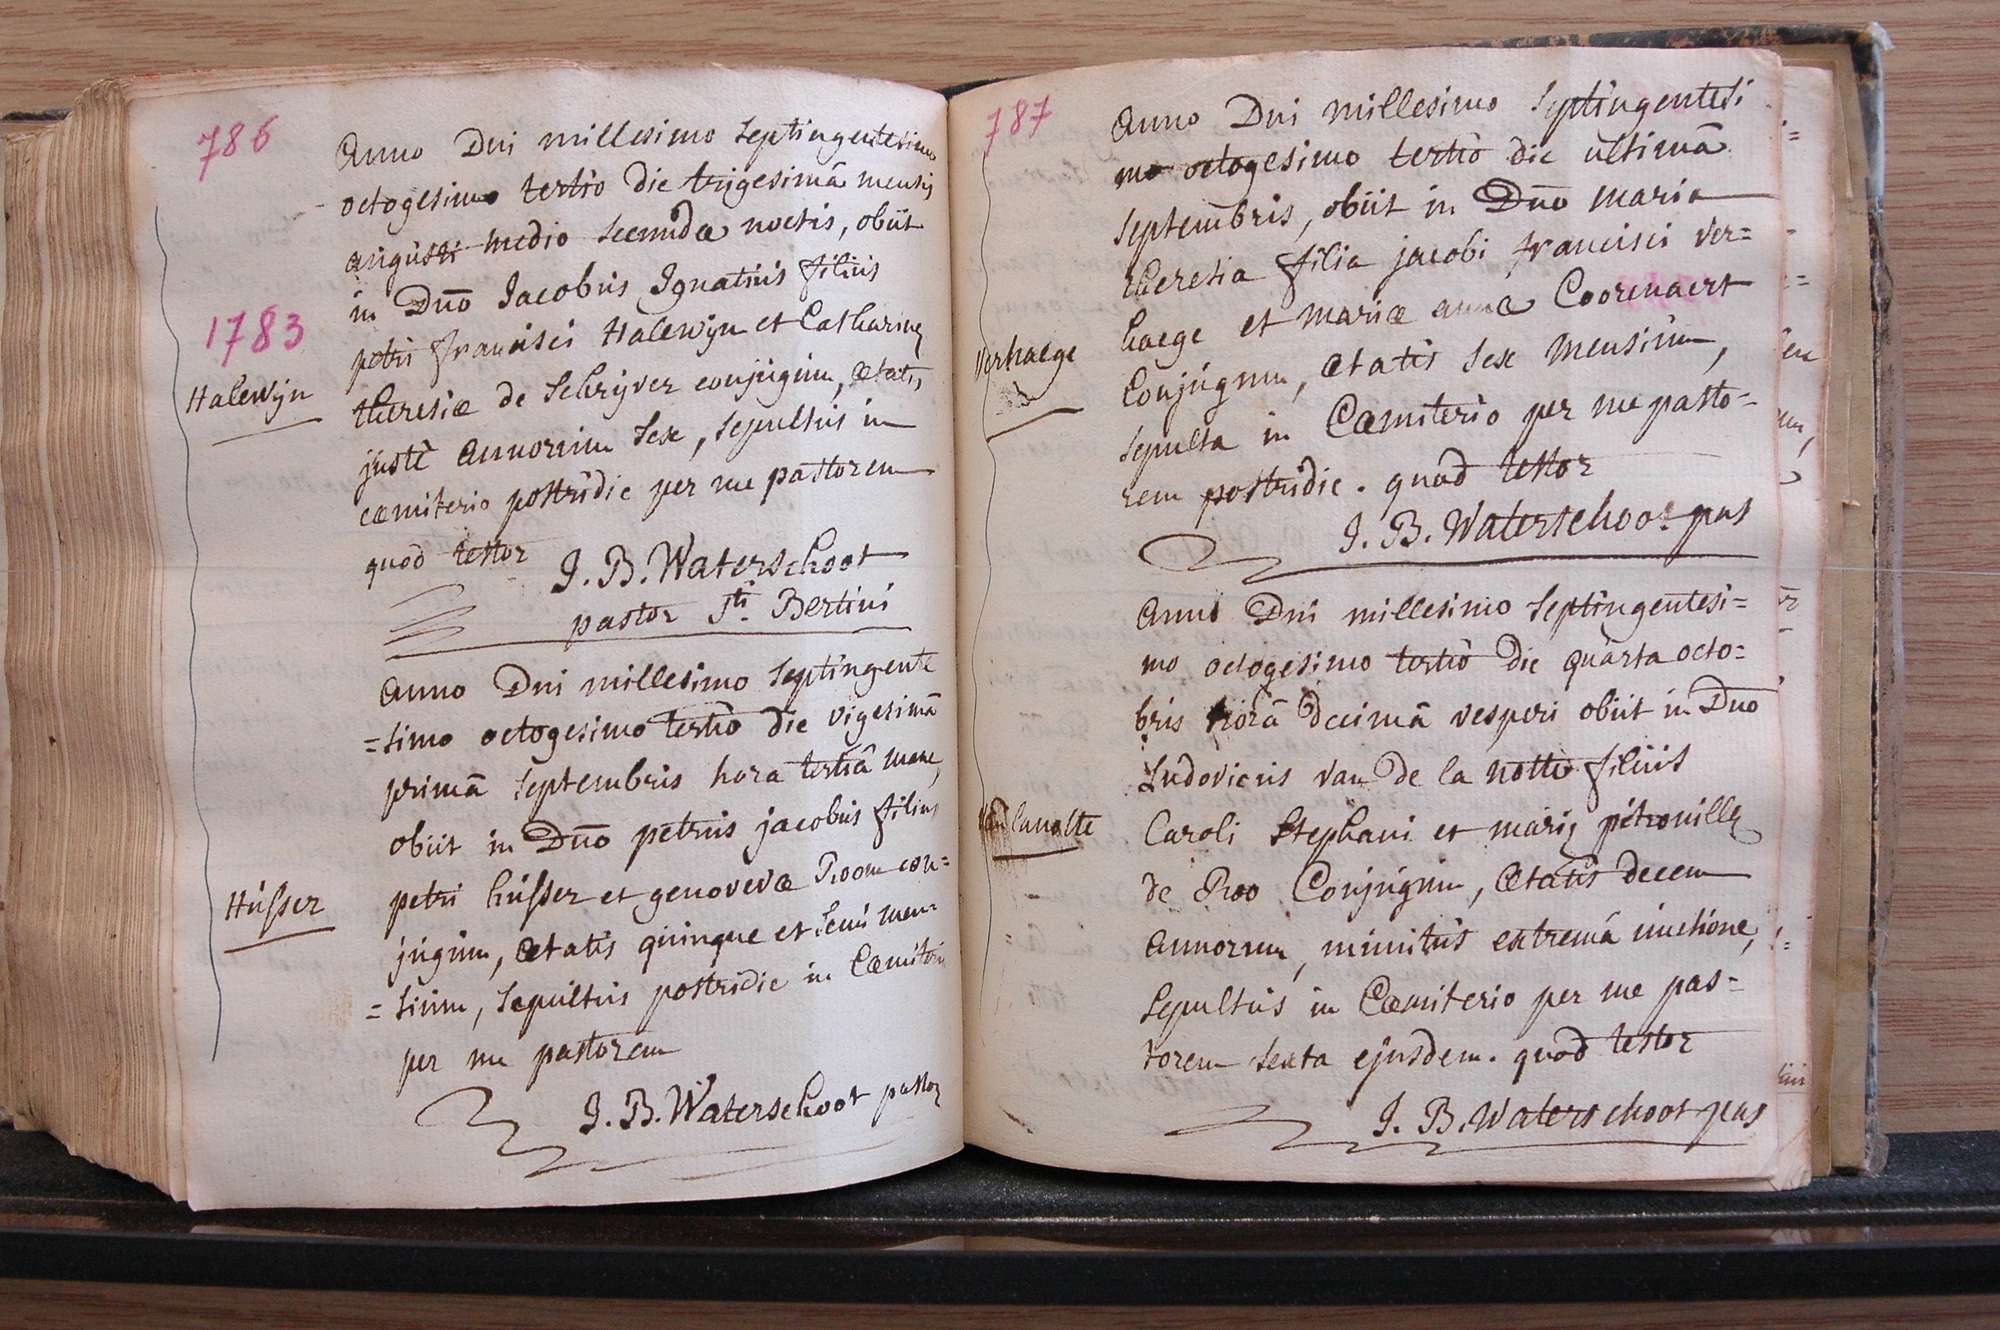 786
Anno Dni millesimo septingentesimo
octogesimo tertio die trigesimâ mensis
augusti medio secundæ noctis, obiit
in Dño Jacobus Ignatius filius
petri francisci Halewijn et Catharinę
1783
theresiæ de Schrijver conjugum, ætatis
Halewijn
justè annorum sex, sepultus in
cæmiterio postridie per me pastorem
quod testor
J. B. Waterschoot
pastor Sti. Bertini
Anno Dni millesimo septingente
=simo octogesimo tertio die vigesimâ
primâ septembris hora tertiâ mane,
obiit in Dño petrus jacobus filius
petri husser et genovevæ Room con=
Husser
jugum, ætatis quinque et semi men=
=sium, sepultus postridie in Cæmiterio
per me pastorem
J. B. Waterschoot pastor
787
Anno Dni millesimo septingentesi
mo octogesimo tertio die ultimâ
septembris, obiit in Dño maria
theresia filia jacobi francisci ver=
haege et mariæ annæ Coorenaert
Verhaege
Conjugum, ætatis sex mensium,
sepulta in Cæmiterio per me pasto=
rem postridie. quod testor
J. B. Waterschoot pas
Anno Dni millesimo septingentesi=
mo octogesimo tertio die quarta octo=
bris horâ decimâ vesperi obiit in Dño
Ludovicus van de la notte filius
Van lanotte
Caroli Stephani et marię petronillę
de Roo Conjugum, ætatis decem
annorum, munitus extremâ unctione,
sepultus in Cæmiterio per me pas=
torem sexta ejusdem. quod testor
J. B. Waterschoot pas